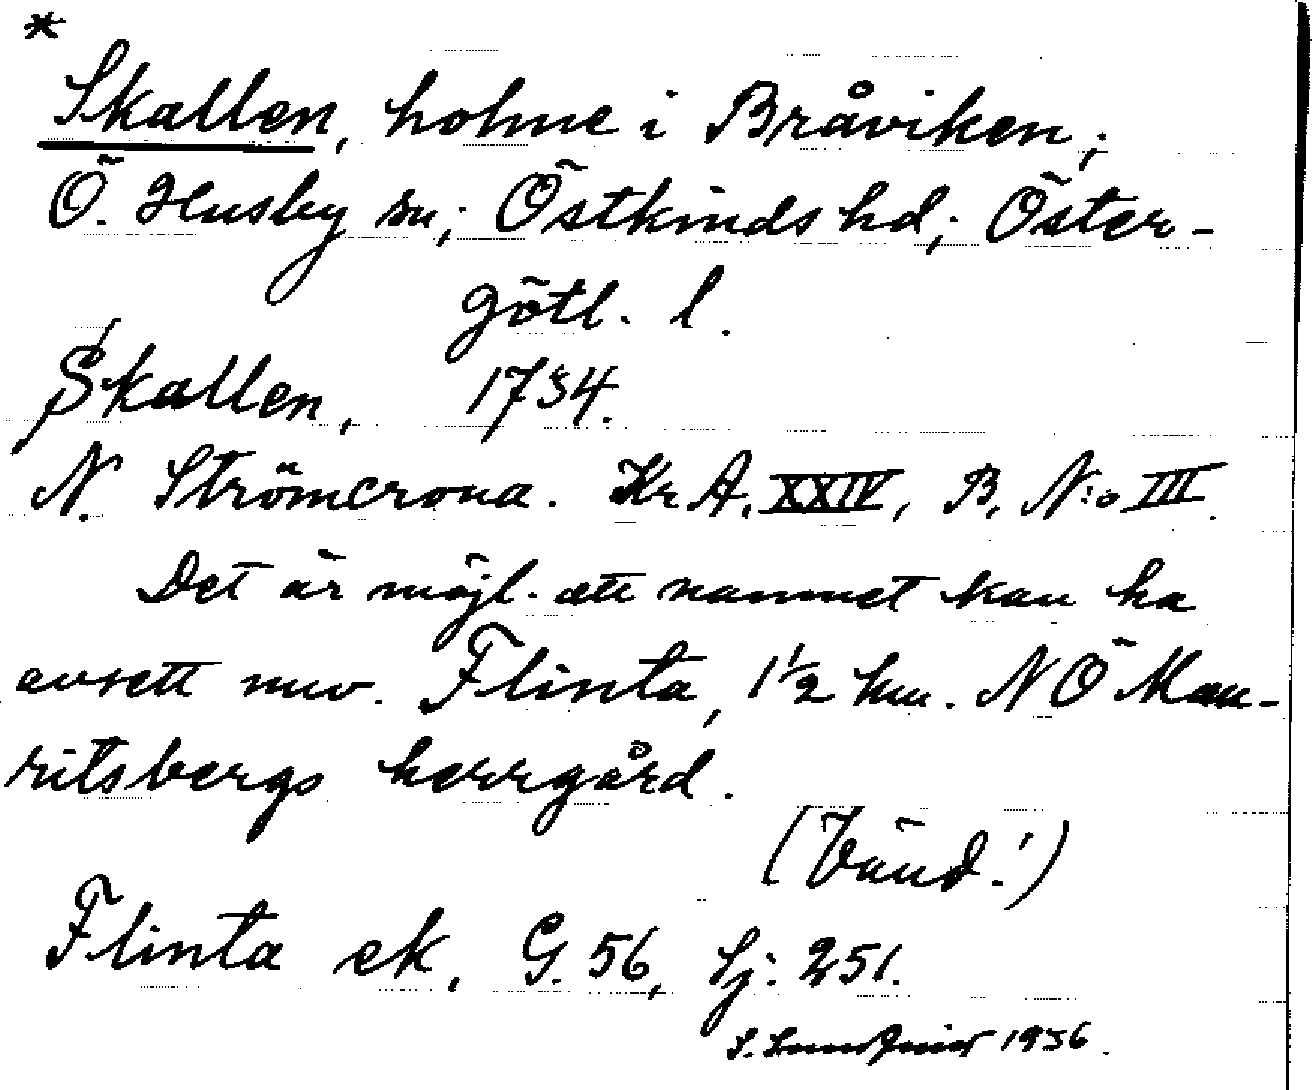 *
Skallen, holme i Bråviken;
Ö. Husby sn; Östkinds hd; Öster-
götl. l.
Skallen, 1734.
N. Strömcrona. Kr A. XXIV, B, N:o III.
Det är möjl. att namnet kan ha
avsett nuv. Flinta, 1½ km. NÖ Mau-
ritsbergs herrgård.
(Vänd!)
Flinta ek, G. 56, Sj: 251.
S. 1936.